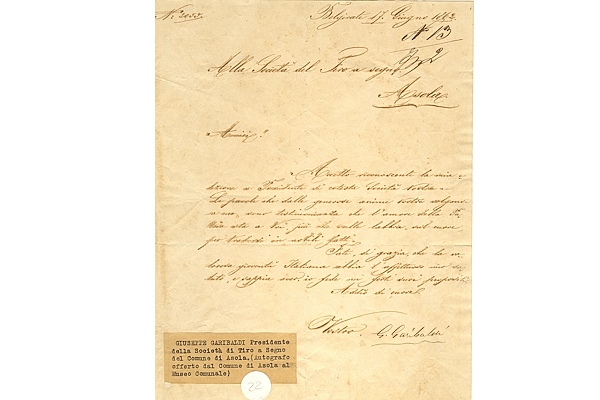 Belgirate 17. Giugno 1862
N 13
Alla Società del Tiro a segno
Asola
Amici!
Accetto riconoscente la mia
elezione a Presidente di codesta Società Vostra.
Le parole che dalle generose anime vostre volgono
a me, sono testimonianza che l'amore della Pa
tria sta a Voi, più che sulle labbra, nel cuore
per tradursi in nobili fatti.
Fate, di grazia, che la va
lorosa gioventù Italiana abbia l'affettuoso mio sa
luto, e sappia ch'io fido in forti suoi propositi.
Addio di cuore
Vostro G. Garibaldi
GIUSEPPE GARIBALDI Presidente
della Società di Tiro a Segno
del Comune di Asola.(Autografo
offerto dal Comune di Asola al
Museo Comunale)
22